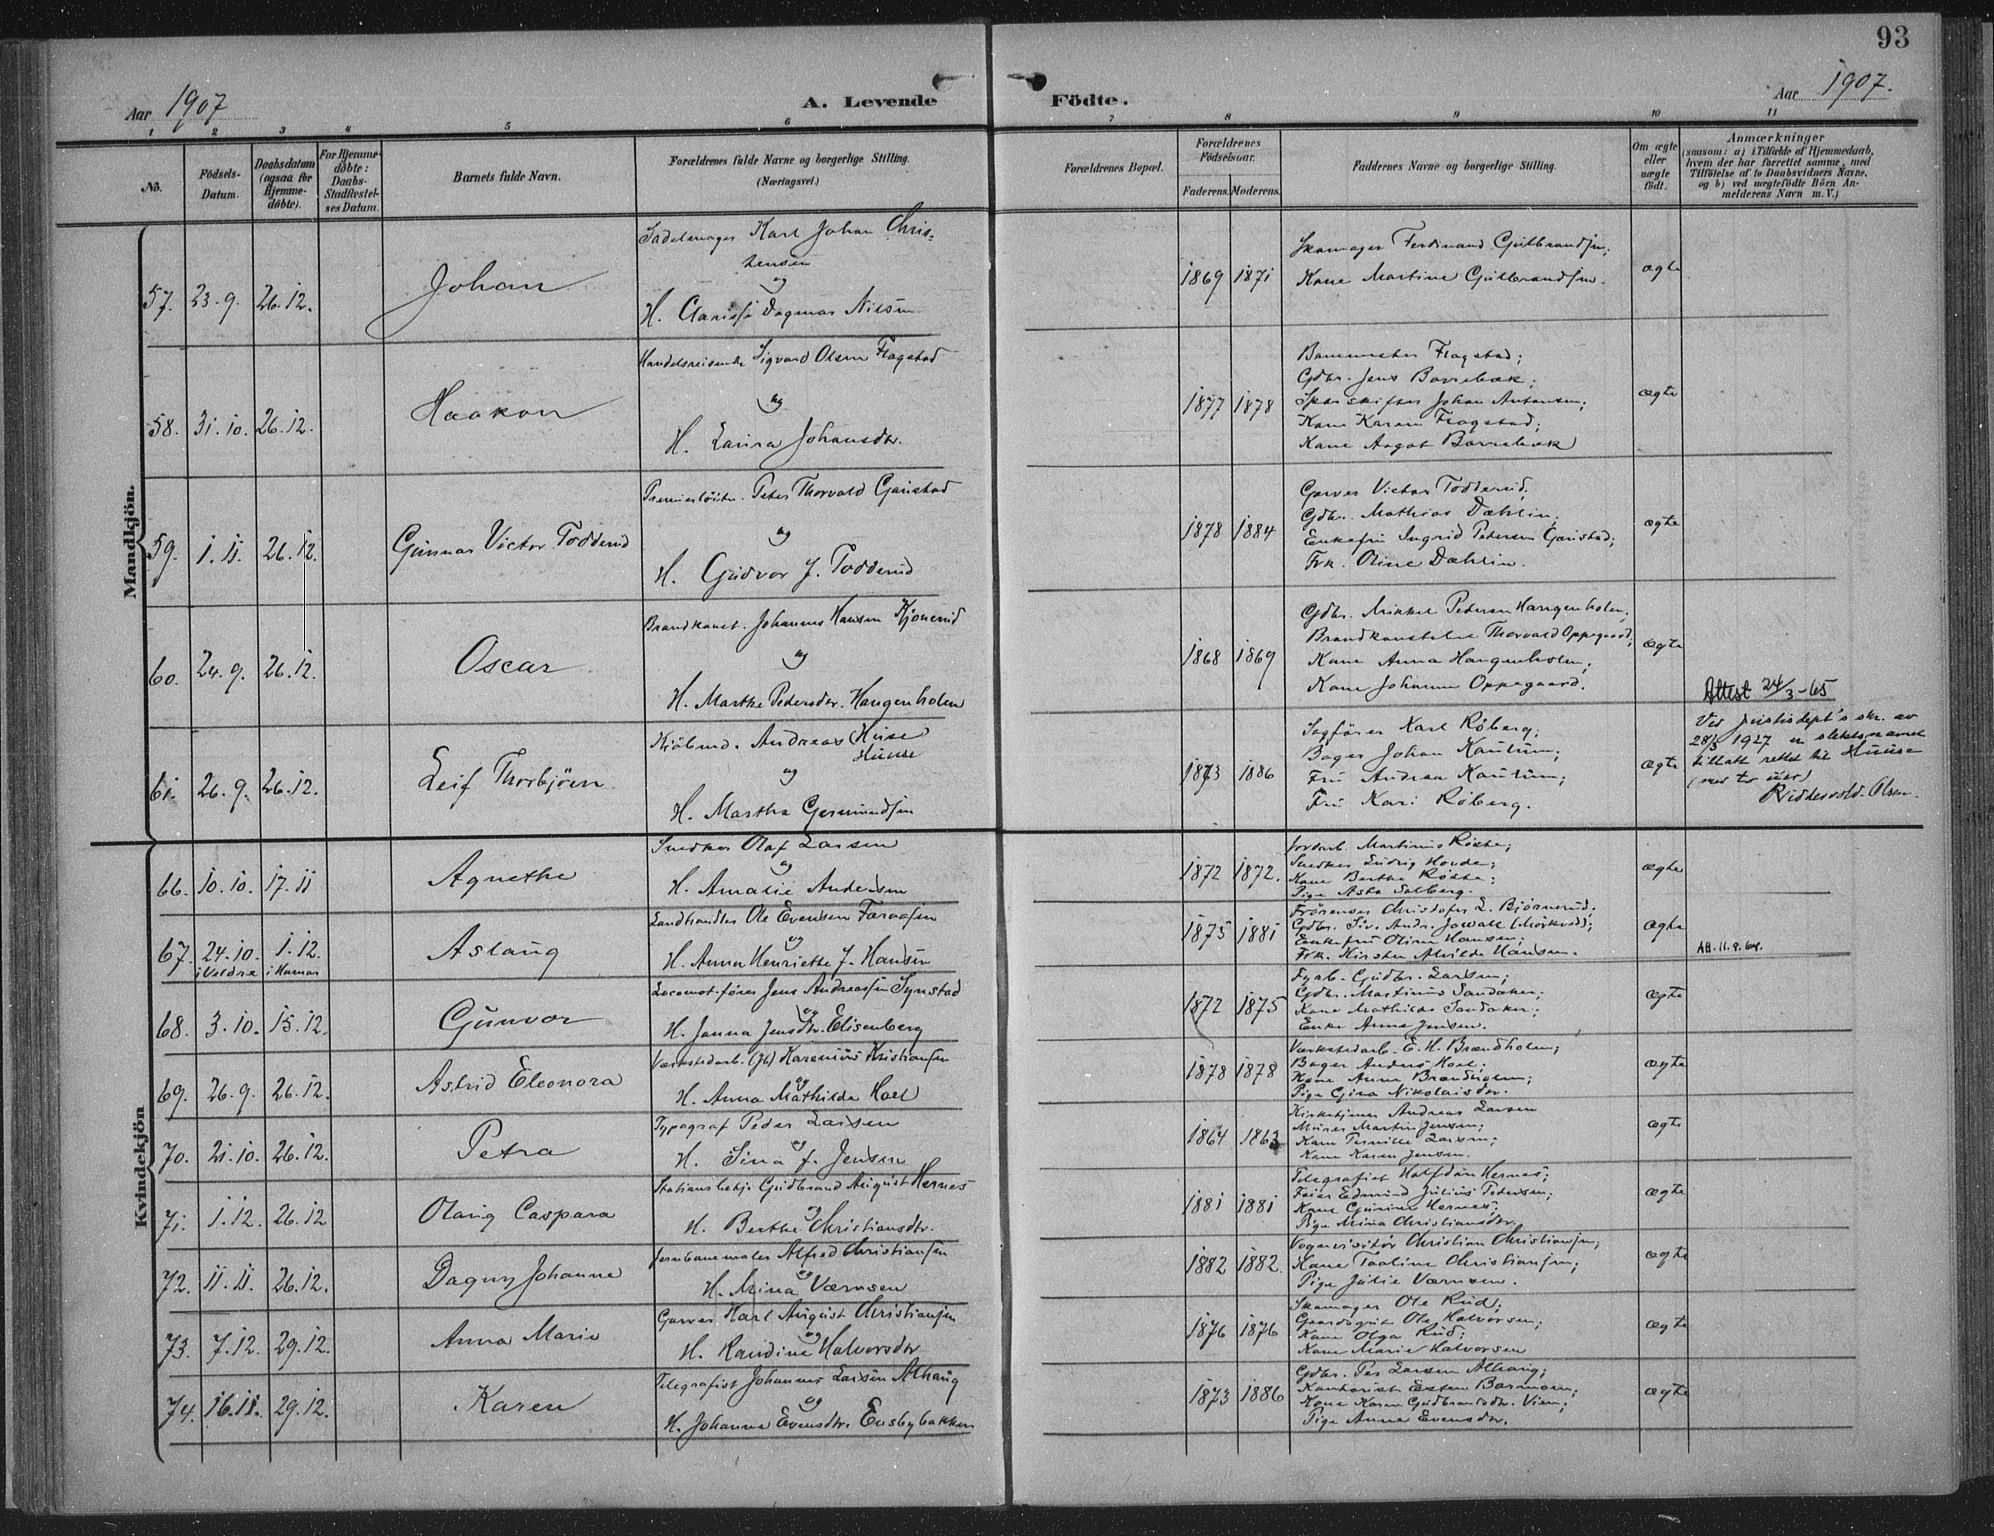 93
Aar 1907
A. Levende
Födte.
Aar 1907.
1 2 3 4 5 6 7 8 9 10 11
No.
Födsels-
Datum.
Daabsdatum
(ogsaa for
Hjemme-
döbte).
For Hjemme-
döbte:
Daabs-
Stadfæstel-
ses Datum.
Barnets fulde Navn.
Forældrenes fulde Navne og borgerlige Stilling.
(Næringsvei.)
Forældrenes Bopæl.
Forældrenes
Födselsaar.
Faderens. Moderens.
Faddernes Navne og borgerlige Stilling.
Om ægte
eller
uægte
födt.
Anmærkninger
(saasom: a) i Tilfælde af Hjemmedaab,
hvem der har forrettet samme, med
Tilföielse af to Daabsvidners Navne,
og b) ved uægtefödte Börn An-
melderens Navn m. V.)
Mandkjön.
57. 23.9. 26.12. Johan
Sadelmager Karl Johan Chris-
tensen
og
H. Clarissi Dagmar Nilsen
1869 1871
Skomager Ferdinand Gulbrandsen;
Kone Martine Gulbrandsen.
ægte
58. 31.10. 26.12. Haakon
Handelsreisende Sigvard Olsen Flagstad
og
H. Laura Johansdtr.
1877 1878
Banemester Flagstad;
Gdbr. Jens Borrebæk;
Sporskifter Johan Antonsen;
Kone Karen Flagstad;
Kone Aagot Borrebæk
ægte
59. 1.11. 26.12. Gunnar Victor Todderud
Premierlöitn. Peter Thorvald Gaustad
og
H. Gudvor J. Todderud
1878 1884
Garver Victor Todderud;
Gdbr. Mathias Dæhlin;
Enkefru Ingrid Petersen Gaustad;
Frk. Oline Dæhlin.
ægte
60. 24.9. 26.12. Oscar
Brandkonst. Johannes Hansen Kjonerud
og
H. Marthe Pedersdtr. Haugenholen
1868 1869
Gdbr. Mikkel Pedersen Haugenholen;
Brandkonstabel Thorvald Oppegaard;
Kone Anna Haugenholen;
Kone Johanne Oppegaard.
ægte
61. 26.9. 26.12. Leif Thorbjörn
Kjöbmd. Andreas Huse
Huuse
og
H. Martha Germundsen
1873 1886
Sagförer Karl Röberg;
Bager Johan Kaurum;
Fru Andrea Kaurum;
Fru Kari Röberg.
ægte
Attest 24/3-65
Ved justisdept's skr. av
28/5 1927 er slektsnavnet
tillatt rettet til Huuse
(med to uer)
Riddervold-Olsen.
Kvindekjön
66. 10.10. 17.11 Agnethe
Snedker Olaf Larsen
og
H. Amalie Andersen
1872 1872.
Jordarb. Martinus Röste;
Snedker Ludvig Hovde;
Kone Berthe Röste;
Pige Asta Solberg.
ægte
67. 24.10. 1.12. Aslaug
i Veldre i Hamar
Landhandler Ole Evensen Faraasen
og
H. Anna Henriette J. Hansen
1875 1881
Frörenser Christofer L. Björnerud;
Enkefru Olina Hansen;
Frk. Kirsten Alvilde Hansen.
ægte
Att. 11.9.64.
68. 3.10. 15.12. Gunvor
Locomot-förer Jens Andreassen Synstad
og
H. Janna Jensdtr. Elisenberg
1872 1875
Fyrb. Gudbr. Larsen;
Gdbr. Martinus Sandaker;
Kone Mathilde Sandaker;
Enke Anne Jensen.
ægte
69. 26.9. 26.12. Astrid Eleonora
Værkstedarb. (Jb) Karenius Kristiansen
og
H. Anna Mathilde Hoel
1878 1878
Værkstedarb. E. H. Brændholen;
Bager Anders Hoel;
Kone Anna Brændholen;
Pige Gina Nikolaisdtr.
ægte
70. 21.10. 26.12. Petra
Typograf Peder Larsen
og
H. Sina J. Jensen
1864 1863
Kirketjener Andreas Larsen
Murer Martin Jensen;
Kone Pernille Larsen;
Kone Karen Jensen.
ægte
71. 1.12. 26.12 Olaug Caspara
Stationsbetj. Gudbrand August Hernes
og
H. Berthe Christiansdtr.
1881 1881
Telegrafist Halfdan Hernes;
Feier Edmund Julius Pedersen;
Kone Gurine Hernes;
Pige Mina Christiansdtr.
ægte
72. 11.11. 26.12. Dagny Johanne
Jernbanemaler Alfred Christiansen
og
H. Mina Værnsen
1882 1882.
Vognvisitör Christian Christiansen;
Kone Taaline Christiansen;
Pige Julie Værnsen.
ægte
73. 7.12. 29.12. Anna Marie
Garver Karl August Christiansen
og
H. Randine Halvorsdtr.
1876 1876
Skomager Ole Rud;
Gaardsgut Ole Halvorsen;
Kone Olga Rud;
Kone Marie Halvorsen
ægte
74. 16.11. 29.12. Karen
Telegrafist Johannes Larsen Alhaug
og
H. Johanne Evensdtr. Ensbybakken
1873 1886
Gdbr. Per Larsen Alhaug;
Kontorist Esten Barmoen;
Kone Karen Gudbrandsdtr. Vien;
Pige Anna Evensdtr.
ægte